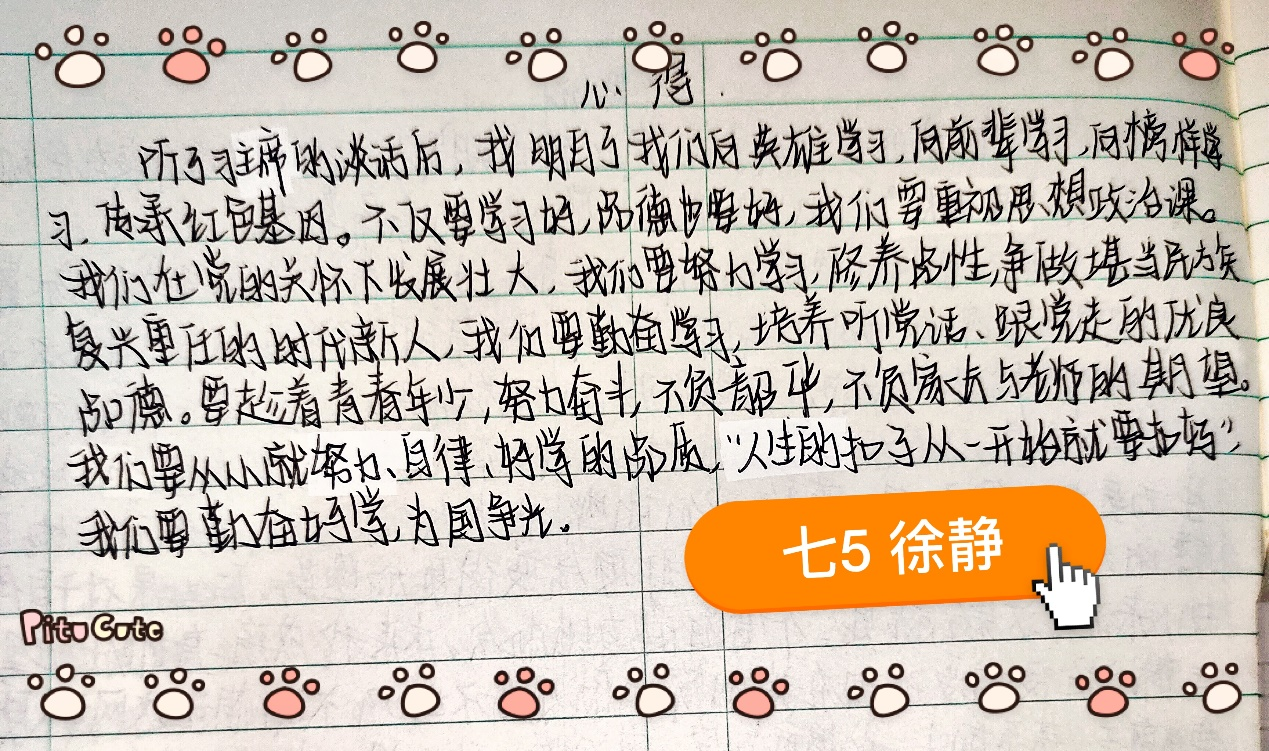 心得
听了习主席的谈话后，我明白了我们向英雄学习，向前辈学习，向榜样学
习，传承红色基因。不仅要学习好，品德也要好，我们要重视思想政治课。
我们在党的关怀下发展壮大，我们要努力学习，修养品性，争做堪当民族
复兴重任的时代新人，我们要勤奋学习，培养听党话、跟党走的优良
品德。要趁着青春年少，努力奋斗，不负韶华，不负家长与老师的期望。
我们要从小就努力、自律、好学的品质，“人生的扣子从一开始就要扣好”，
我们要勤奋好学，为国争光。
七5 徐静
Pitu Cute